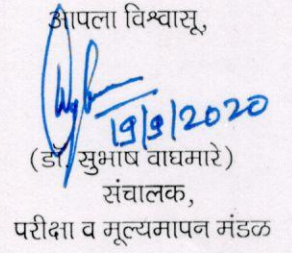 आपला विश्वासू,
19/9/2020
(डॉ. सुभाष वाघमारे)
संचालक,
परीक्षा व मूल्यमापन मंडळ